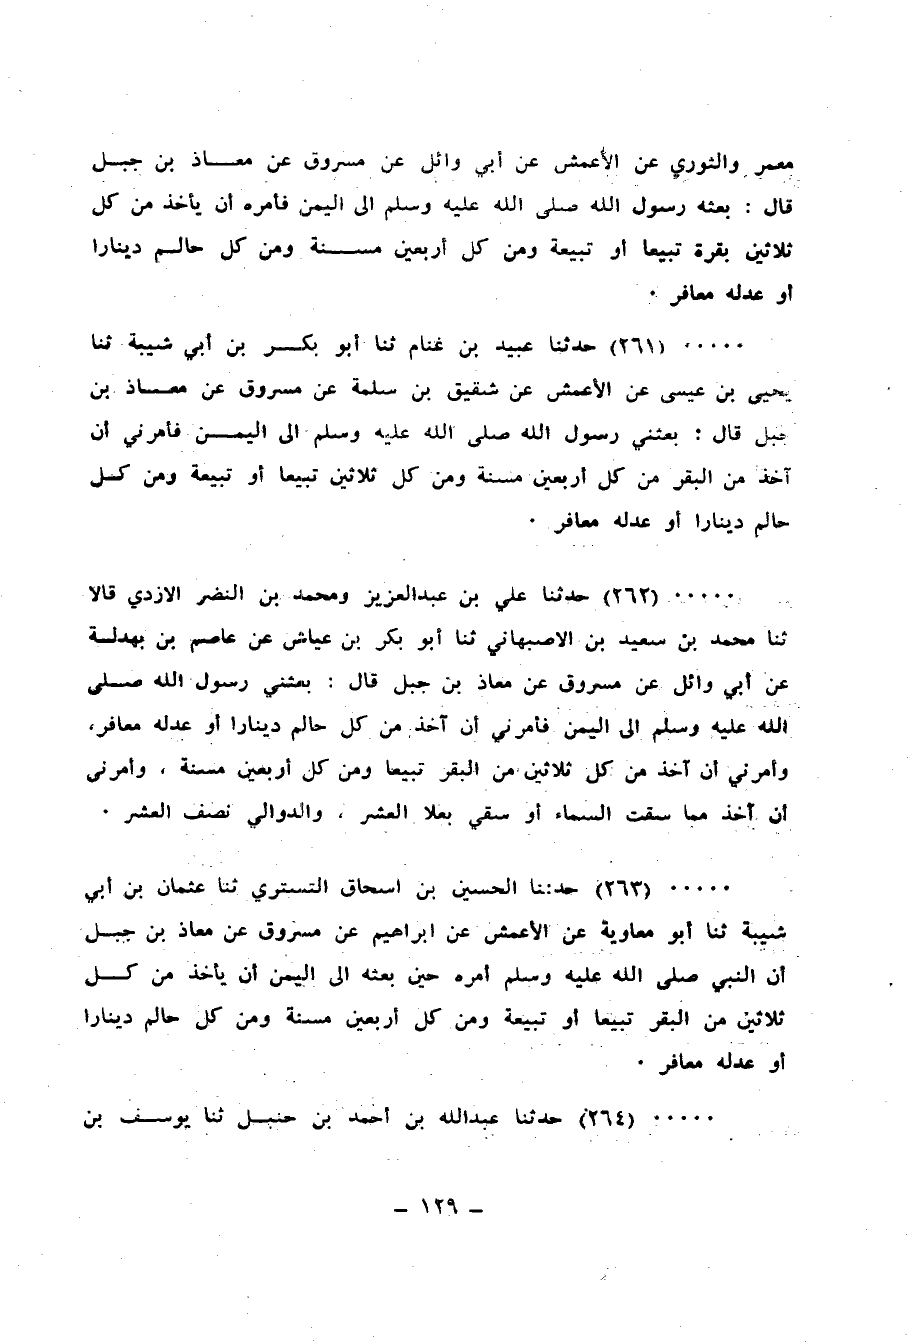 معمر والثوري عن الأعمش عن أبي وائل عن مسروق عن معاذ بن جبل
قال : بعثه رسول الله صلى الله عليه وسلم الى اليمن فأمره أن يأخذ من كل
ثلاثين بقرة تبيعا أو تبيعة ومن كل أربعين مسنة ومن كل حالم دينارا
أو عدله معافر ٠
٠٠٠٠٠ (٢٦١) حدثنا عبيد بن غنام ثنا أبو بكر بن أبي شيبة ثنا
يحيى بن عيسى عن الأعمش عن شقيق بن سلمة عن مسروق عن معاذ بن
جبل قال : بعثني رسول الله صلى الله عليه وسلم الى اليمن فأمرني أن
آخذ من البقر من كل أربعين مسنة ومن كل ثلاثين تبيعا أو تبيعة ومن كل
حالم دينارا أو عدله معافر ٠
٠٠٠٠٠ (٢٦٢) حدثنا علي بن عبدالعزيز ومحمد بن النضر الازدي قالا
ثنا محمد بن سعيد بن الاصبهاني ثنا أبو بكر بن عياش عن عاصم بن بهدلة
عن أبي وائل عن مسروق عن معاذ بن جبل قال : بعثني رسول الله صلى
الله عليه وسلم الى اليمن فأمرني أن آخذ من كل حالم دينارا أو عدله معافر،
وأمرني أن آخذ من كل ثلاثين من البقر تبيعا ومن كل أربعين مسنة ، وأمرني
أن آخذ مما سقت السماء أو سقي بعلا العشر ، والدوالي نصف العشر ٠
٠٠٠٠٠ (٢٦٣) حدثنا الحسين بن اسحاق التستري ثنا عثمان بن أبي
شيبة ثنا أبو معاوية عن الأعمش عن ابراهيم عن مسروق عن معاذ بن جبل
أن النبي صلى الله عليه وسلم أمره حين بعثه الى اليمن أن يأخذ من كل
ثلاثين من البقر تبيعا أو تبيعة ومن كل أربعين مسنة ومن كل حالم دينارا
أو عدله معافر ٠
٠٠٠٠٠ (٢٦٤) حدثنا عبدالله بن أحمد بن حنبل ثنا يوسف بن
– ١٢٩ –